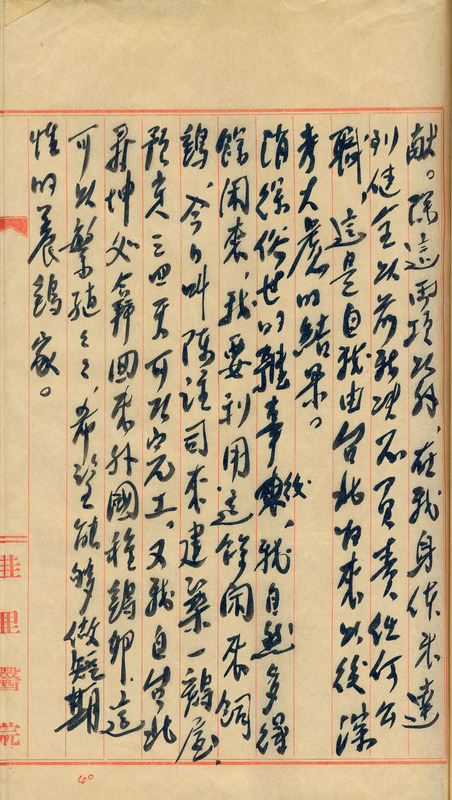 献。除這兩項以外,在我身体未達
到健全以前我決不負責任何公
職,這是自我由台北回來以後深
考大慮的結果。
消除俗世的雜事後,我自然多得
餘閑來,我要利用這餘閑來飼
鷄,今日叫陳註司來建築一鷄屋,
預定三四天可以完工。又我自台北
昇坤處帶回來外國種鷄卵,這
可以繁殖々々,希望能夠做短期
性的養鷄家。
佳里醫院
60